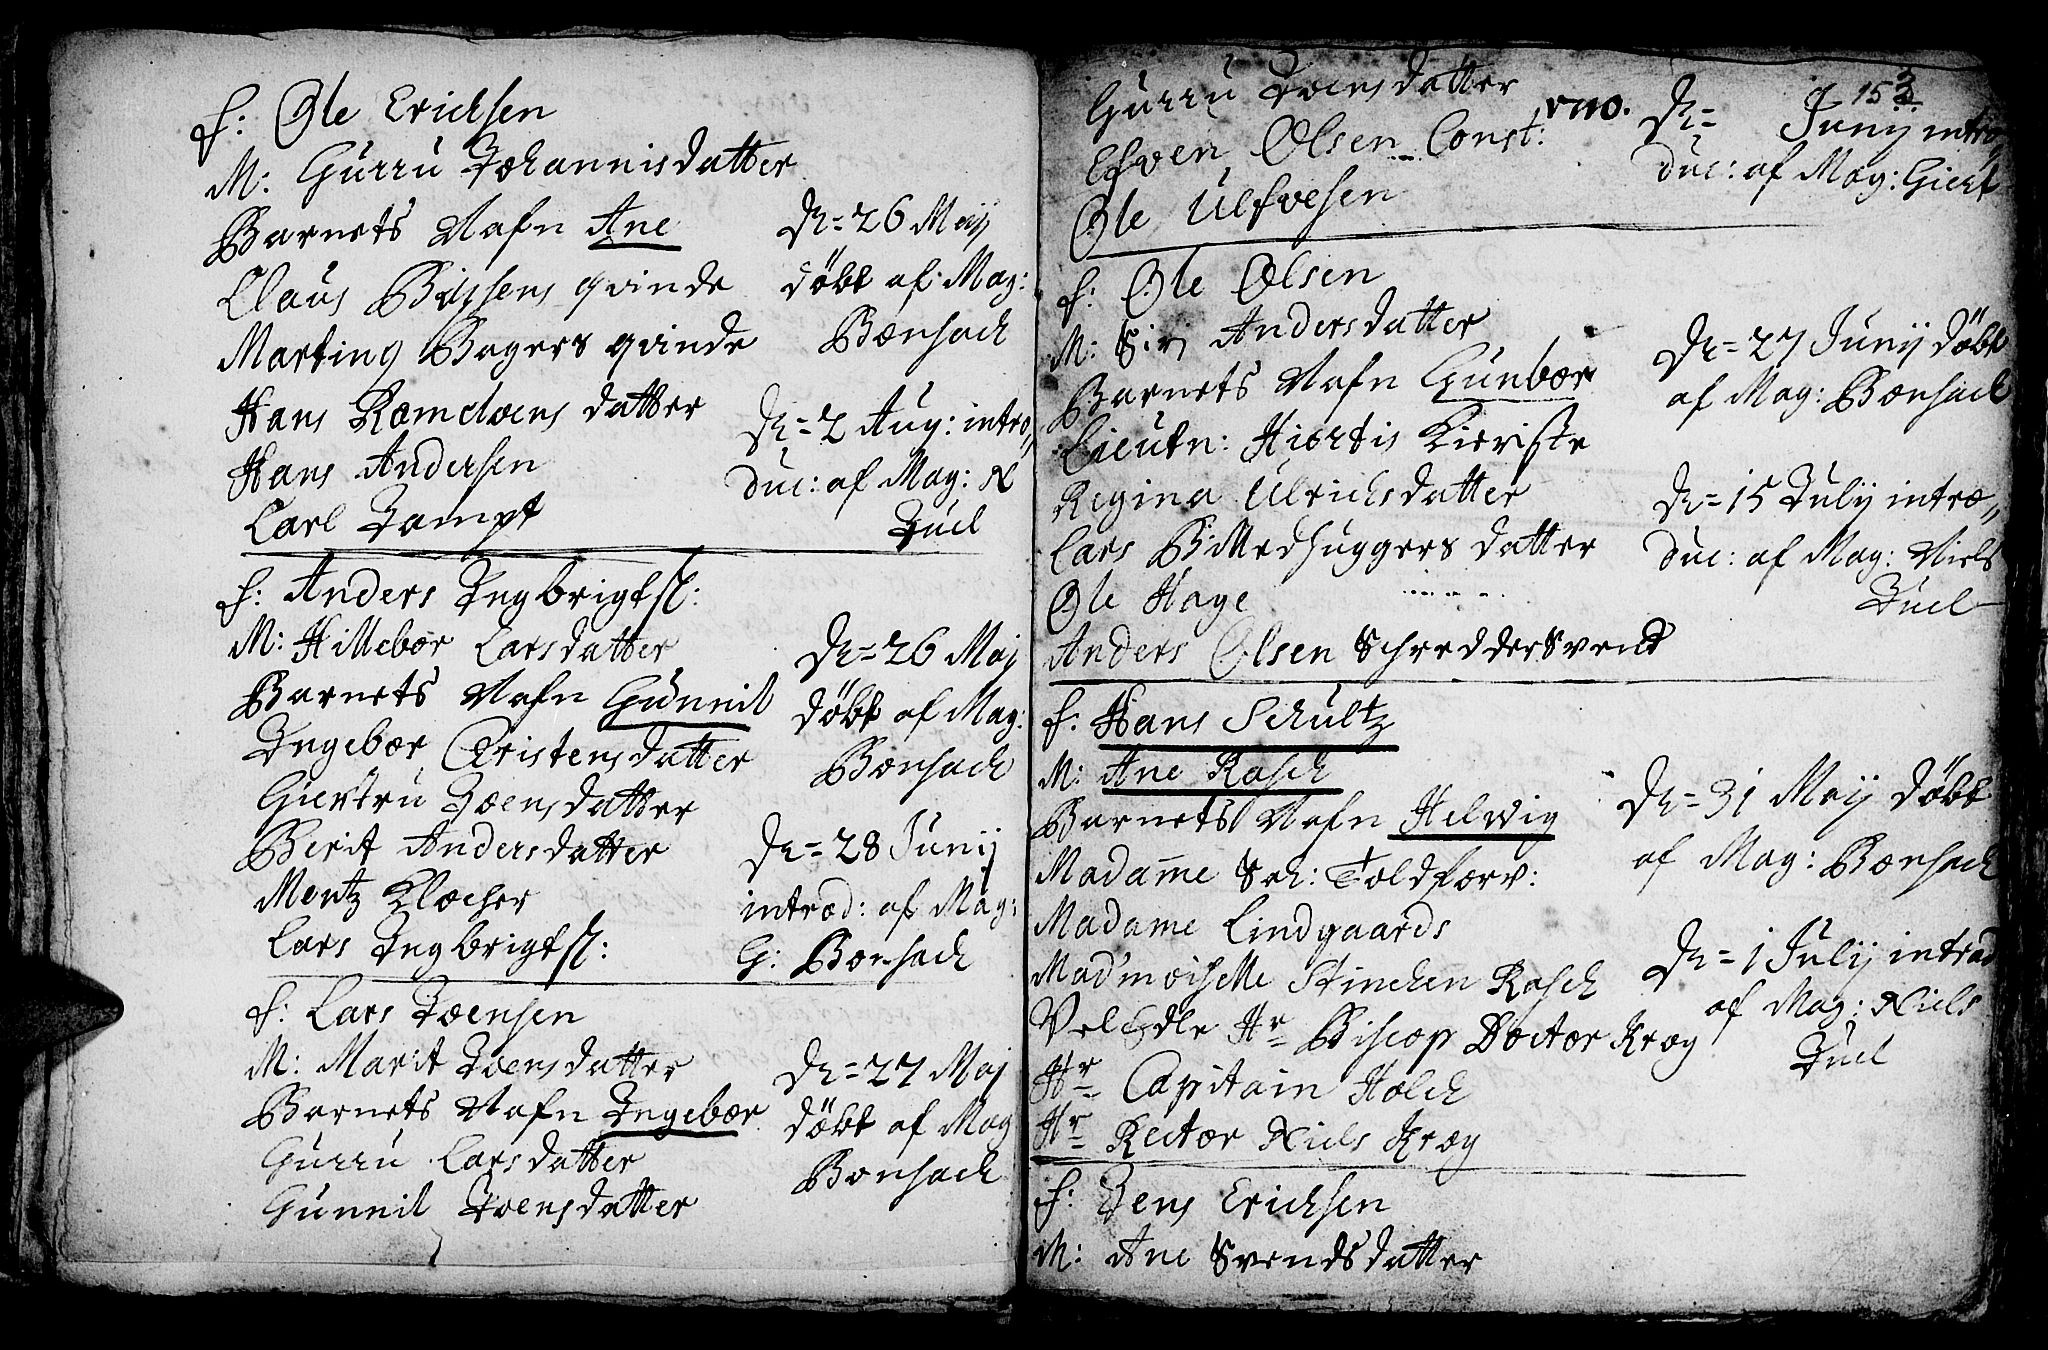 f: Ole Erichsen
M: Gurru Johannisdatter
Barnets Nafn Ane
Claus Bussens qvinde
Marting Bagers qvinde
Hans Romdoens datter
Hans Andersen
Carl Damp
D: = 26 Maij
döbt af: Mag:
Bonsach
D: = 2 Aug: intro„
duc: af Mag: N
Juel
f: Anders Ingbrigtsl:
M: Hillebor Larsdatter
Barnets Nafn Gunnil
Ingebor Cristensdatter
Giertru Joensdatter
Berit Andersdatter
Mentz Klocher
Lars Ingbrigtsl:
D: = 26 Maj
döbt af Mag:
Bonsach
D: = 28 Junij
introd: af Mag:
G: Bonsach
f: Lars Joensen
M: Marit Joensdatter
Barnets Nafn Ingebor
Gurru Larsdatter
Gunnil Joensdatter
D: = 27 Maj
döbt af Mag
Bonsach
153.
Gurru Joensdatter
1710.
Esven Olsen Const:
Ole Ulfvesen
D: = Junij intro„
duc: af Mag: Giert
f: Ole Olsen
M: Siri Andersdatter
Barnets Nafn Gunbor
Lieutn: Hiortis Kieriste
Regina Ulrichsdatter
Lars Billedhuggers datter
Ole Hage
Anders Olsen Schreddersvend
D: = 27 Junij döbt
af Mag: Bonsach
D: = 15 Julij intro„
duc: af Mag: Niels
Juel
f: Hans Schultz
M: Ane Rasch
Barnets Nafn Helwig
Madame Sch: Toldforv:
Madame Lindgaards
Mad'moiselle Stinchen Rasch
VelEdle Hr Biscop Doctor Krog
Hr Capitain Holch
Hr Rector Niels Krog
D: = 31 Maij döbt
af Mag: Bonsach
D: = 1 Julij introd
af Mag: Niels
Juel
f: Jens Erichsen
M: Ane Svendsdatter